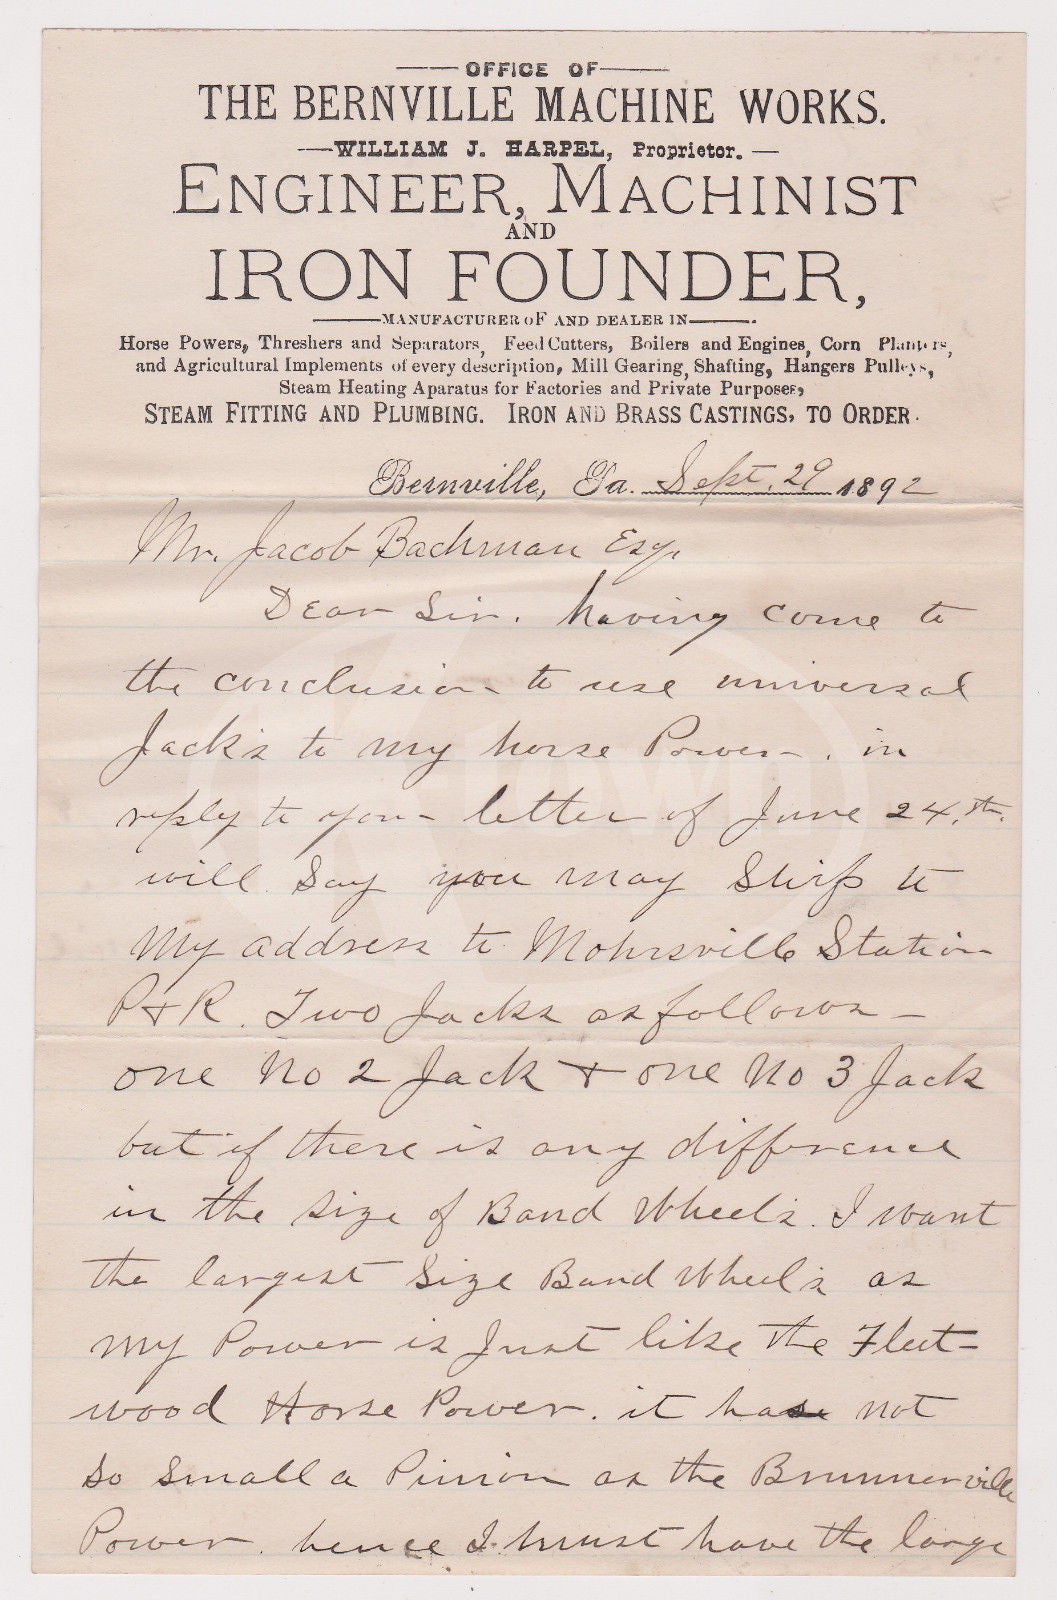 OFFICE OF
THE BERNVILLE MACHINE WORKS.
WILLIAM J. HARPEL, Proprietor.
ENGINEER, MACHINIST
AND
IRON FOUNDER,
MANUFACTURER OF AND DEALER IN
Horse Powers, Threshers and Separators, Feed Cutters, Boilers and Engines, Corn Planters,
and Agricultural Implements of every description, Mill Gearing, Shafting, Hangers Pulleys,
Steam Heating Aparatus for Factories and Private Purposes,
STEAM FITTING AND PLUMBING. IRON AND BRASS CASTINGS, TO ORDER.
Bernville, Pa. Sept. 29 1892
Mr. Jacob Bachman Esq.
Dear Sir. having come to
the conclusion to use universal
Jack's to my horse Power. in
reply to your letter of June 24.th.
will Say you may Ship to
My address to Mohrsville Station
P & R. Two Jacks as follows –
one No 2 Jack & one No 3 Jack
but if there is any difference
in the size of Band Wheels. I want
the largest Size Band Wheel's as
my Power is Just like the Fleet=
wood Horse Power. it has not
so small a Pinion as the Brunnerville
Power. hence I must have the large